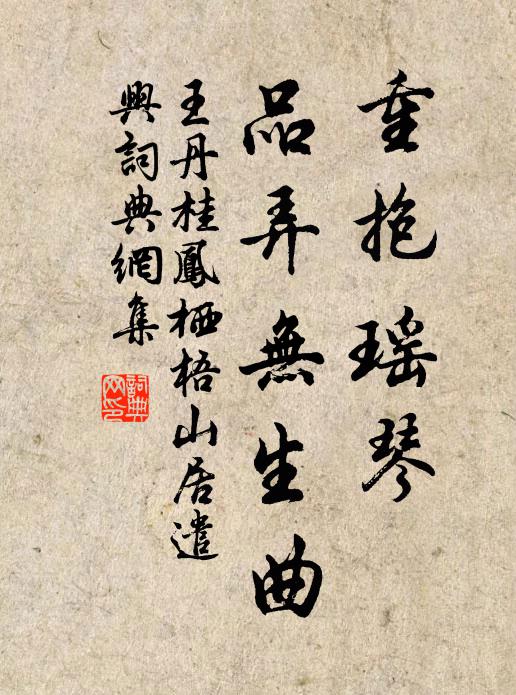 重抱瑶琴
品弄無生曲
王丹桂鳳栖梧山居遣
興詞典網集
詞典
网印